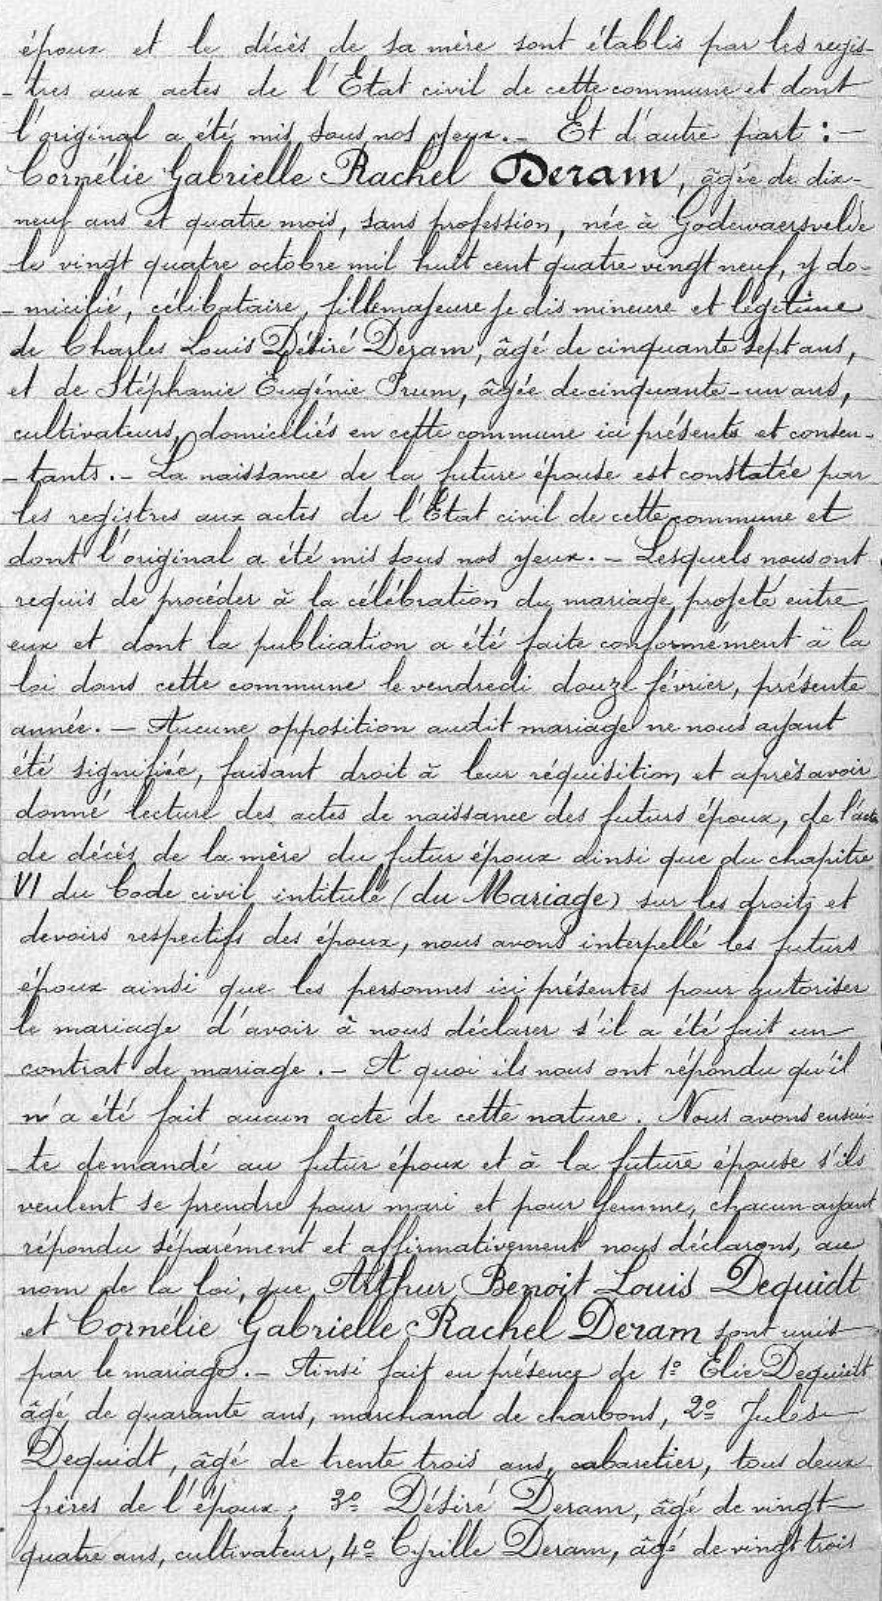 époux et le décès de sa mère sont établis par les regis-
-tres aux actes de l'Etat civil de cette commune et dont
l'original a été mis sous nos yeux. - Et d'autre part : -
Cornélie Gabrielle Rachel Deram, âgée de dix-
neuf ans et quatre mois, sans profession, née à Godewaersvelde
le vingt quatre octobre mil huit cent quatre vingt neuf, y do-
-micilié, célibataire, fille majeure je dis mineure et légitime
de Charles Louis Désiré Deram, âgé de cinquante sept ans,
et de Stéphanie Eugénie Prum, âgée de cinquante-un ans,
cultivateurs, domiciliés en cette commune ici présents et consen-
-tants. - La naissance de la future épouse est constatée par
les registres aux actes de l'Etat civil de cette commune et
dont l'original a été mis sous nos yeux. - Lesquels nous ont
requis de procéder à la célébration du mariage projeté entre
eux et dont la publication a été faite conformément à la
loi dans cette commune le vendredi douze février, présente
année. - Aucune opposition audit mariage ne nous ayant
été signifiée, faisant droit à leur réquisition, et après avoir
donné lecture des actes de naissance des futurs époux, de l'acte
de décès de la mère du futur époux ainsi que du chapitre
VI du Code civil intitulé (du Mariage) sur les droits et
devoirs respectifs des époux, nous avons interpellé les futurs
époux ainsi que les personnes ici présentes pour autoriser
le mariage d'avoir à nous déclarer s'il a été fait un
contrat de mariage. - A quoi ils nous ont répondu qu'il
n'a été fait aucun acte de cette nature. Nous avons ensui-
-te demandé au futur époux et à la future épouse s'ils
veulent se prendre pour mari et pour femme, chacun ayant
répondu séparément et affirmativement nous déclarons, au
nom de la loi, que Arthur Benoit Louis Dequidt
et Cornélie Gabrielle Rachel Deram sont unis
par le mariage. - Ainsi fait en présence de 1º Elie Dequidt
âgé de quarante ans, marchand de charbons, 2º Jules
Dequidt, âgé de trente trois ans, cabaretier, tous deux
frères de l'époux ; 3º Désiré Deram, âgé de vingt-
quatre ans, cultivateur, 4º Cyrille Deram, âgé de vingt trois